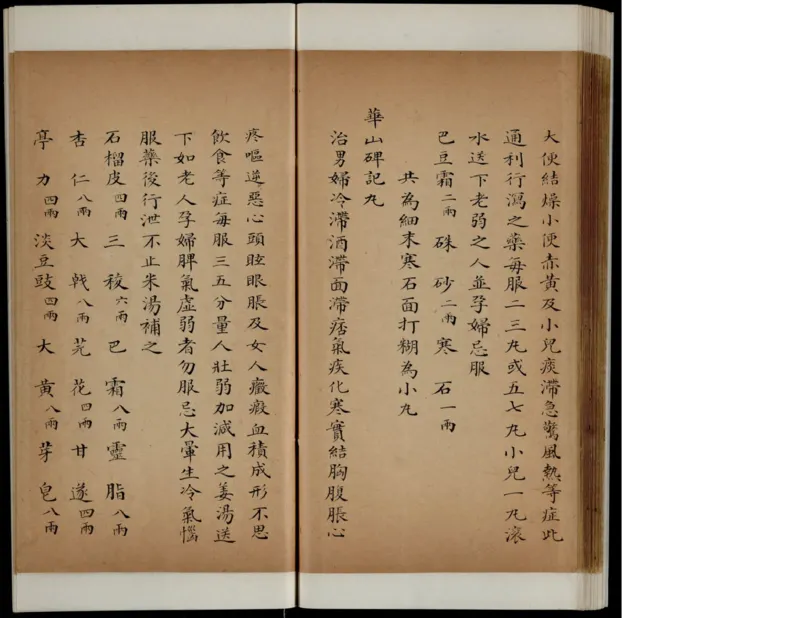 大便結燥小便赤黃及小兒痰滯急驚風熱等症此
通利行瀉之藥每服二三丸或五七丸小兒一丸滾
水送下老弱之人並孕婦忌服
巴豆霜二兩 硃 砂二兩 寒 石一兩
共為細末寒石面打糊為小丸
華山碑記丸
治男婦冷滯酒滯面滯痞氣疾化寒實結胸腹脹心
疼嘔逆惡心頭眩眼脹及女人癥瘕血積成形不思
飲食等症每服三五分量人壯弱加減用之姜湯送
下如老人孕婦脾氣虛弱者勿服忌大暈生冷氣惱
服藥後行泄不止米湯補之
石榴皮四兩 三 稜六兩 巴 霜八兩 靈 脂八兩
杏 仁八兩 大 戟八兩 芫 花四兩 甘 遂四兩
亭 力四兩 淡豆豉四兩 大 黃八兩 芽 皂八兩